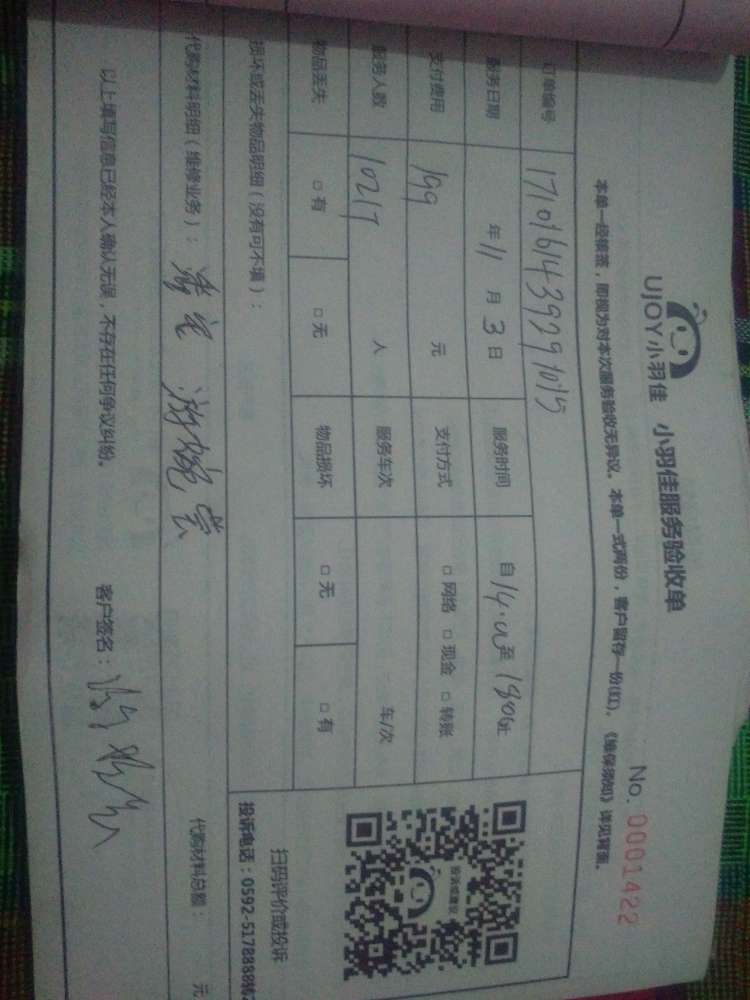 UJOY小羽佳 小羽佳服务验收单
No. 0001422
本单一经核签，即视为对本次服务验收无异议。本单一式两份，客户留存一份(红)。《维保须知》详见背面。
订单编号
服务日期 年 11 月 3 日 服务时间 自 14:00 至
支付费用 199 元 支付方式 □ 网络 □ 现金 □ 转账
服务人数 人 服务车次 车/次
物品丢失 □ 有 □ 无 物品损坏 □ 无 □ 有
投诉或建议
扫码评价或投诉
损坏或丢失物品明细（没有可不填）：
投诉电话：0592-5178888转
代购材料明细（维修业务）： 代购材料总额： 元
以上填写信息已经本人确认无误，不存在任何争议纠纷。 客户签名：